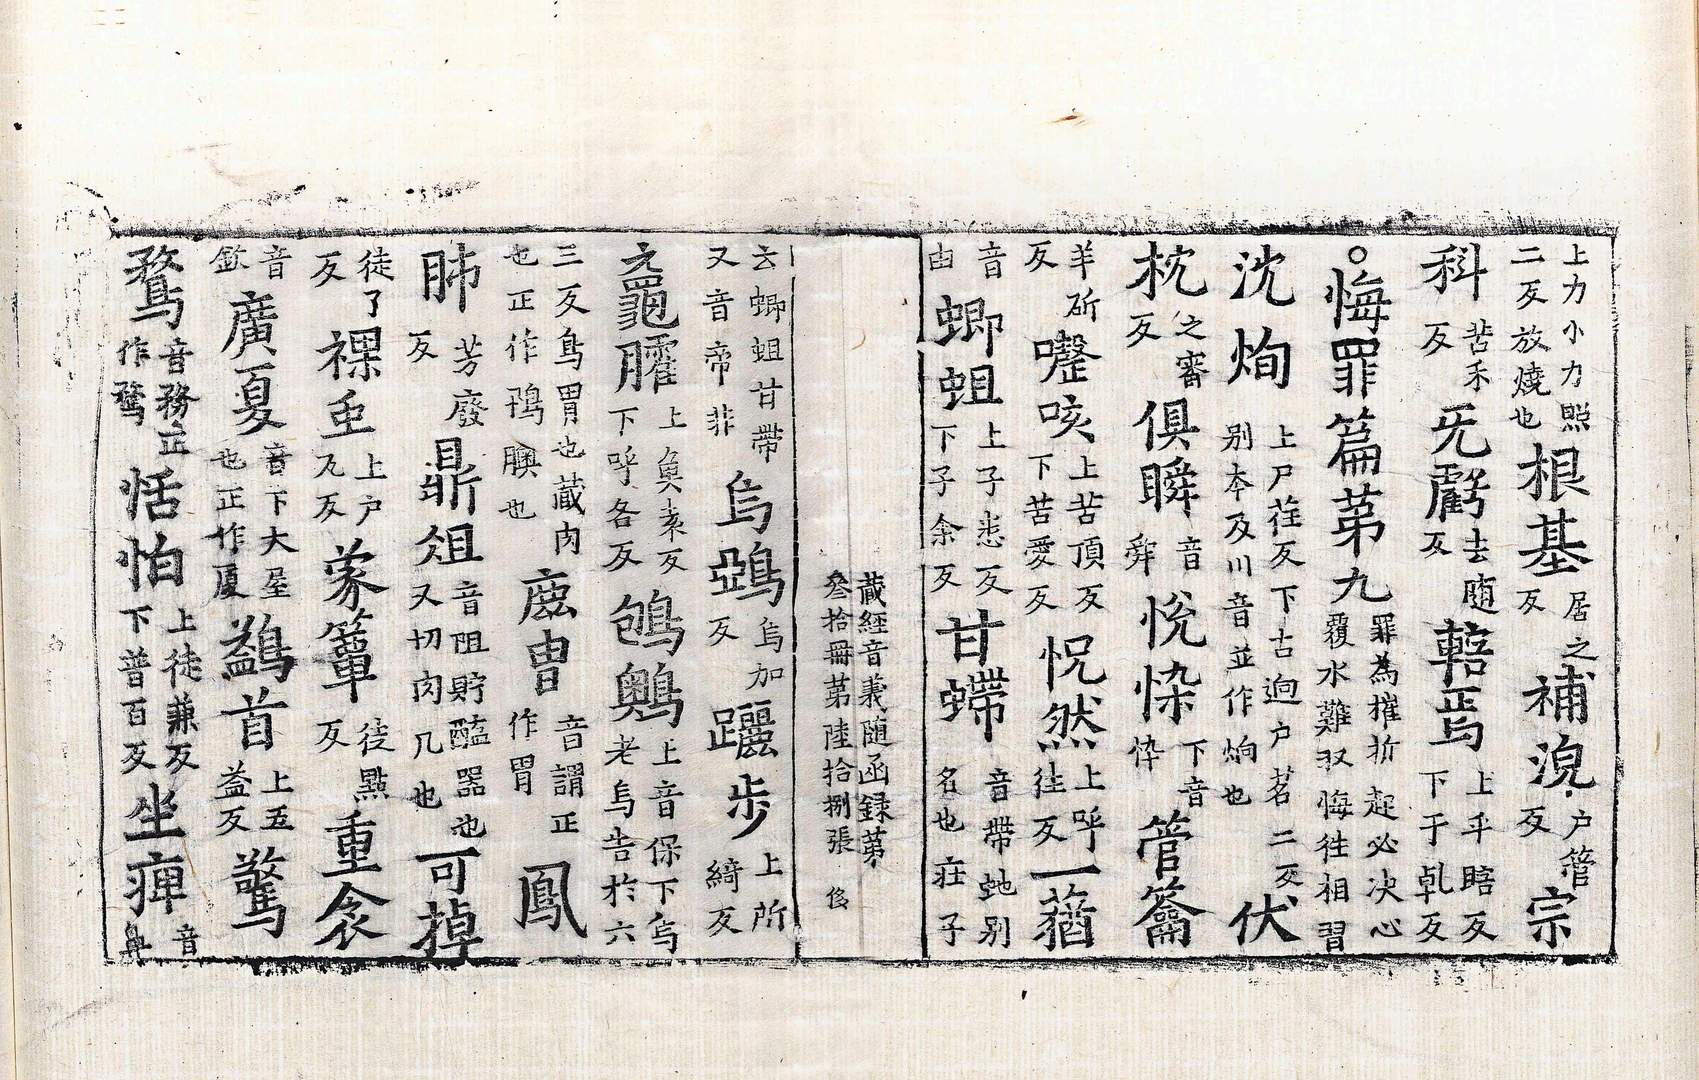 上力小力照二反放燒也根基居之反補浣戶管反宗
科苦禾反旡虧去随反轄焉上乎瞎反下于乹反
○悔罪篇苐九罪為摧折起必決心覆水難収悔徃相習
沈炯上尸荏反下古逈戶茗二反別本及川音並作烱也伏
枕之審反俱瞬音舜悅忰下音悴管籥
羊斫反嚏咳上苦頂反下苦愛反怳然上呼往反一蕕
音由蝍蛆上子悉反下子余反甘蠕音帶虵別名也莊子
藏經音義随函録第
叄拾冊苐陸拾捌張 俊
云蝍蛆甘帶又音帝非烏鵶烏加反躧步上所綺反
元龜臛上魚袁反下呼各反鴝鷃上音保下烏老烏告於六
三反鳥胃也藏肉也正作鴇腴也鹿冑音謂正作胃鳳
肺芳廢反鼎俎音阻貯醢器也又切肉几也可掉
徒了反裸䖝上户瓦反蒙簞徒點反重衾
音欽廣夏音下大屋也正作厦鷁首上五益反驚
鶩音務正作鶩恬怕上徒兼反下普百反坐痺音毋